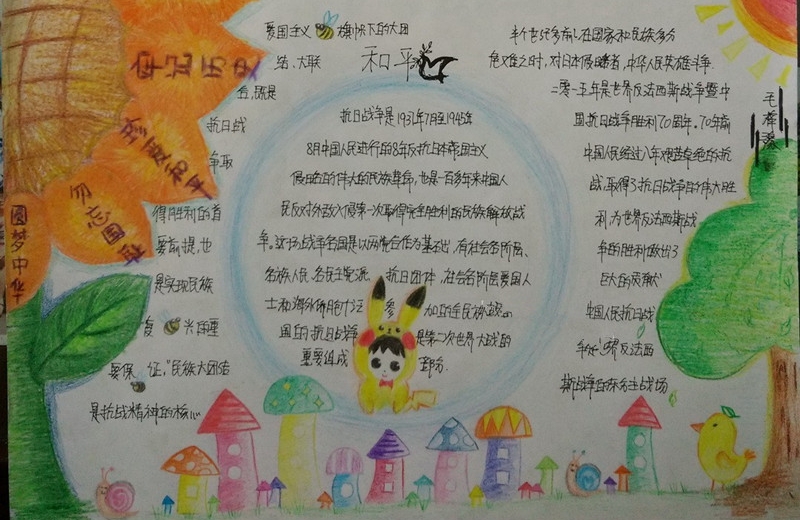 牢记历史
珍爱和平
勿忘国耻
圆梦中华
爱国主义旗帜下的大团
结、大联
合,既是
抗日战
争取
得胜利的首
要前提,也
是实现民族
复兴的重
要保证,"民族大团结
是抗战精神的核心
和平
抗日战争是1937年7月至1945年
8月中国人民进行的8年反抗日本帝国主义
假日的正的伟大的民族革命,也是一百多年来中国人
民反对外敌入侵第一次取得完全胜利的民族解放战
争。这场战争各国是以两党合作为基础,有社会各阶层、
各族人民、各民主党派、抗日团体,社会各阶层爱国人
士和海外侨胞广泛参加的全民族
国的抗日战争是第二次世界大战的
重要组成部分.
半个世纪多前,在国家和民族多分
危难之时,对日本侵略者,中华人民英雄斗争.
二零一五年是世界反法西斯战争暨中
国抗日战争胜利70周年.70年前
中国人民经过八年艰苦卓绝的抗
战,取得了抗日战争的伟大胜
利,为世界反法西斯战
争的胜利做出了
巨大的贡献
中国人民抗日战
争是世界反法西
斯战争的东方主战场